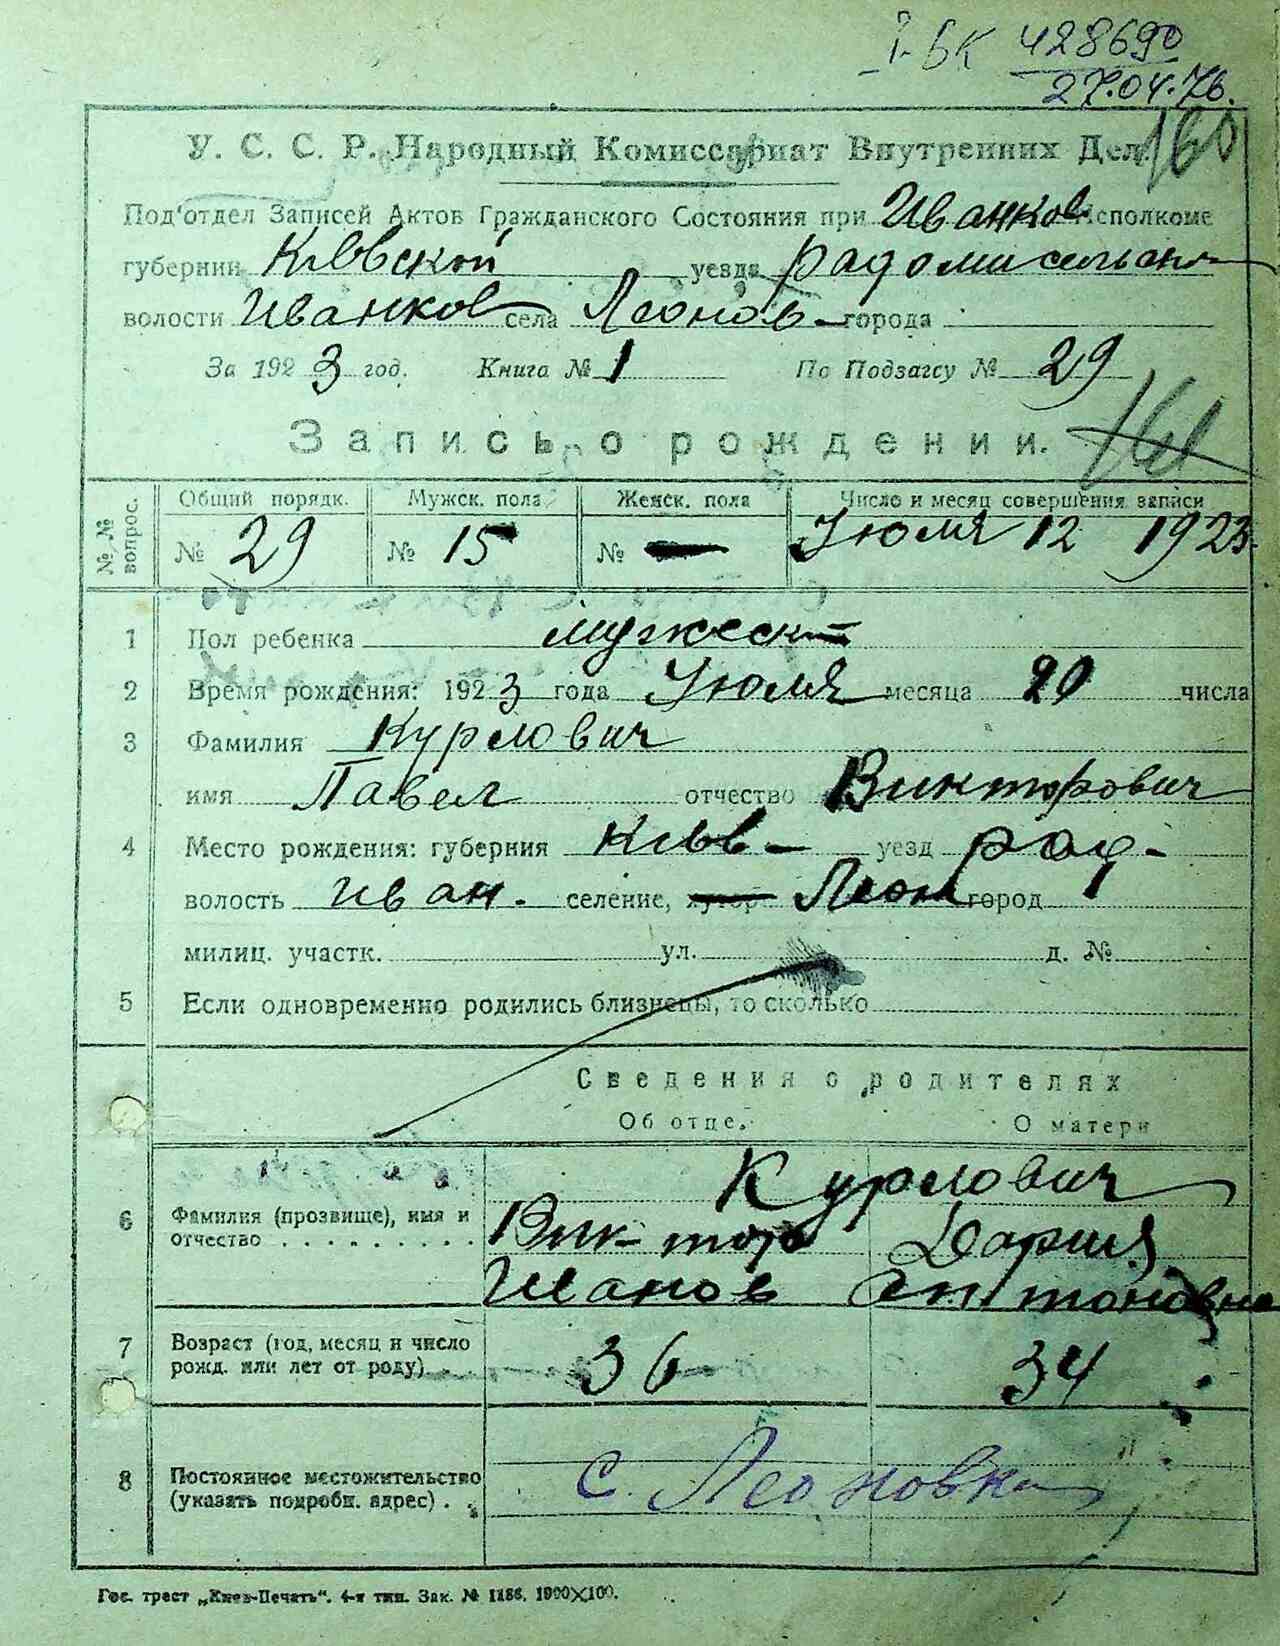 I-БК 428690
27.04.76.
160
У. С. С. Р. Народный Комиссариат Внутренних Дел.
Под'отдел Записей Актов Гражданского Состояния при Иванков Исполкоме
губернии Киевской уезда Радомисельско
волости Иванков села Леонов- города
За 1923 год. Книга № 1 По Подзагсу № 29
161
Запись о рождении.
№ № вопрос. Общий порядк. Мужск. пола Женск. пола Число и месяц совершения записи
№ 29 № 15 № — Июля 12 1923.
1 Пол ребенка мужеск-
2 Время рождения: 1923 года Июля месяца числа
3 Фамилия Курлович
имя Павел отчество Викторович
4 Место рождения: губерния Киев- уезд Рад-
волость Иван. селение, хутор Леон город
милиц. участк. ул. д. №
5 Если одновременно родились близнецы, то сколько
Сведения о родителях
Об отце. О матери
Курлович
6 Фамилия (прозвище), имя и отчество Виктор Дария
Иванов Антоновна
7 Возраст (год, месяц и число рожд. или лет от роду) 36 34
8 Постоянное местожительство (указать подробн. адрес) с. Леоновка
Гос. трест „Киев-Печать". 4-я тип. Зак. № 1186. 1900X100.